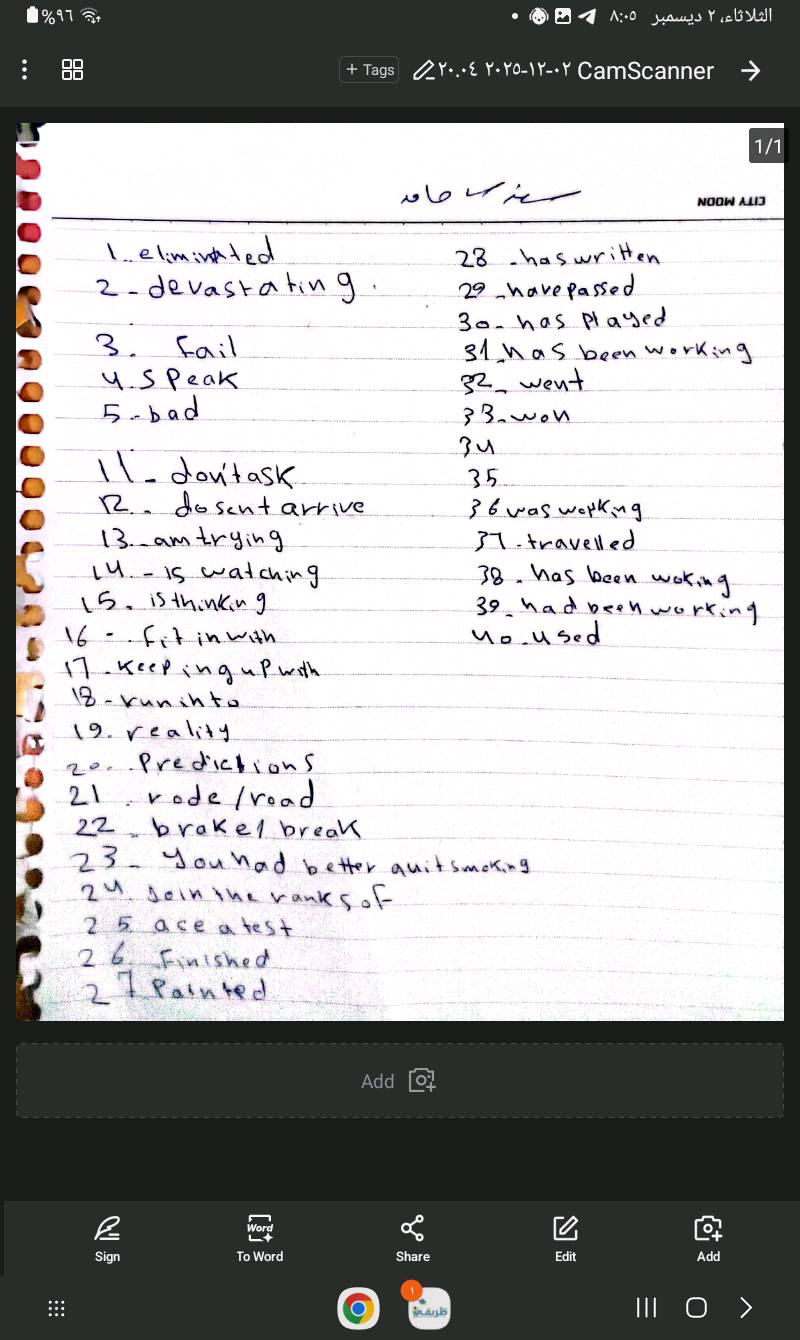 الثلاثاء، ٢ ديسمبر ٨:٠٥
%٩٦
CamScanner ٠٢-١٢-٢٠٢٥ ٢٠.٠٤
+ Tags
1/1
CITY MOON
1. eliminated
2- devastating.
3. Fail
4. Speak
5- bad
11- don'task
12. dosent arrive
13- am trying
14.- is watching
15. is thinking
16-. fit in with
17. Keeping up with
18- run into
19. reality
20.. Predictions
21. rode / road
22. brake / break
23- You had better quit smoking
24. Join the ranks of
25. ace a test
26. Finished
27 Painted
28 - has written
29 - have passed
30- has played
31- has been working
32- went
33- won
34
35
36 was working
37- travelled
38. has been woking
39- had been working
40. used
Add
Sign
To Word
Share
Edit
Add
Word
١